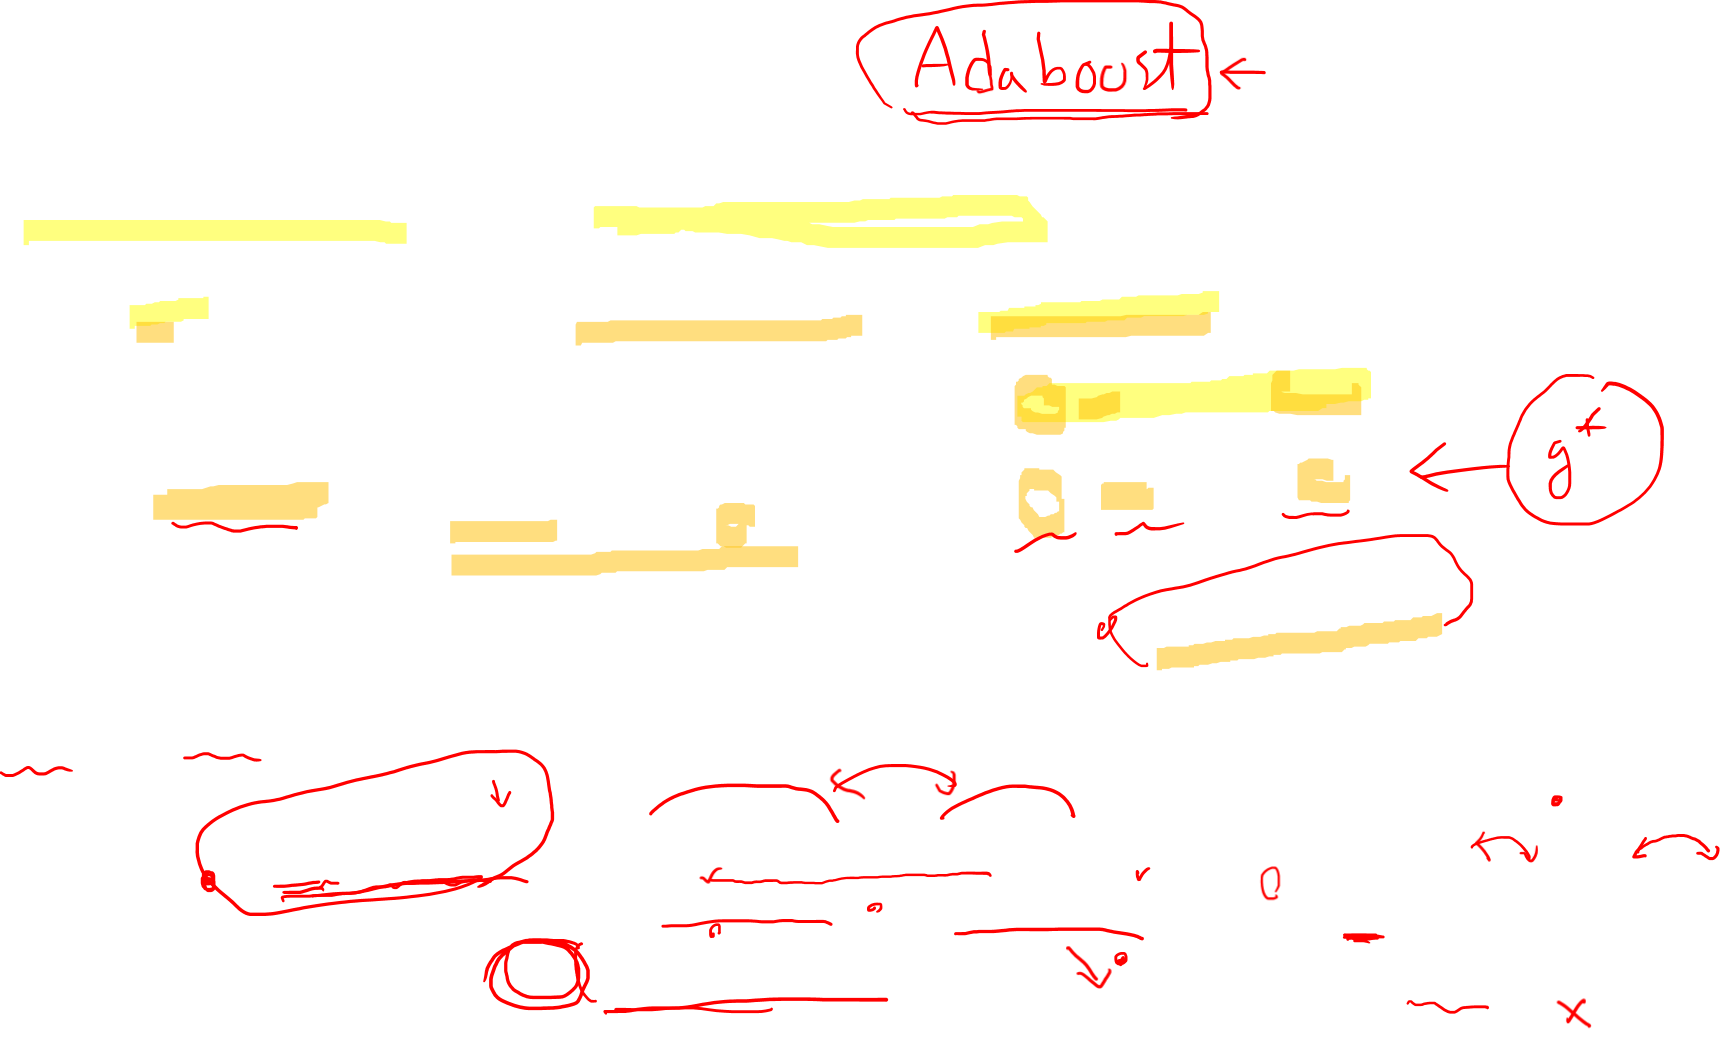 Adaboost
g*